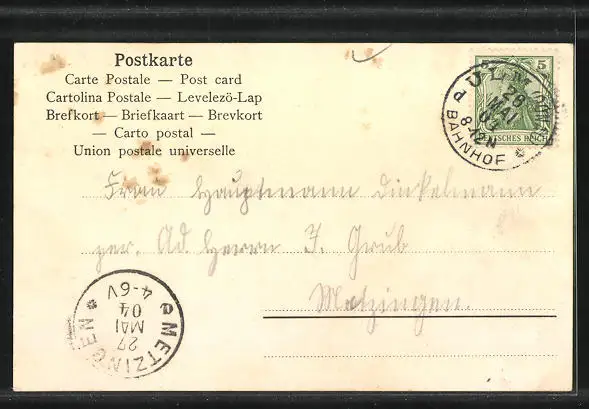 Postkarte
Carte Postale — Post card
Cartolina Postale — Levelezö-Lap
Brefkort — Briefkaart — Brevkort
— Carto postal —
Union postale universelle
5 5
DEUTSCHES REICH
26
MAI
8-12N
BAHNHOF
Frau Hauptmann Dinkelmann
per. Ad. Herrn J. Grub
Metzingen.
METZINGEN
27
MAI
04
4-6V